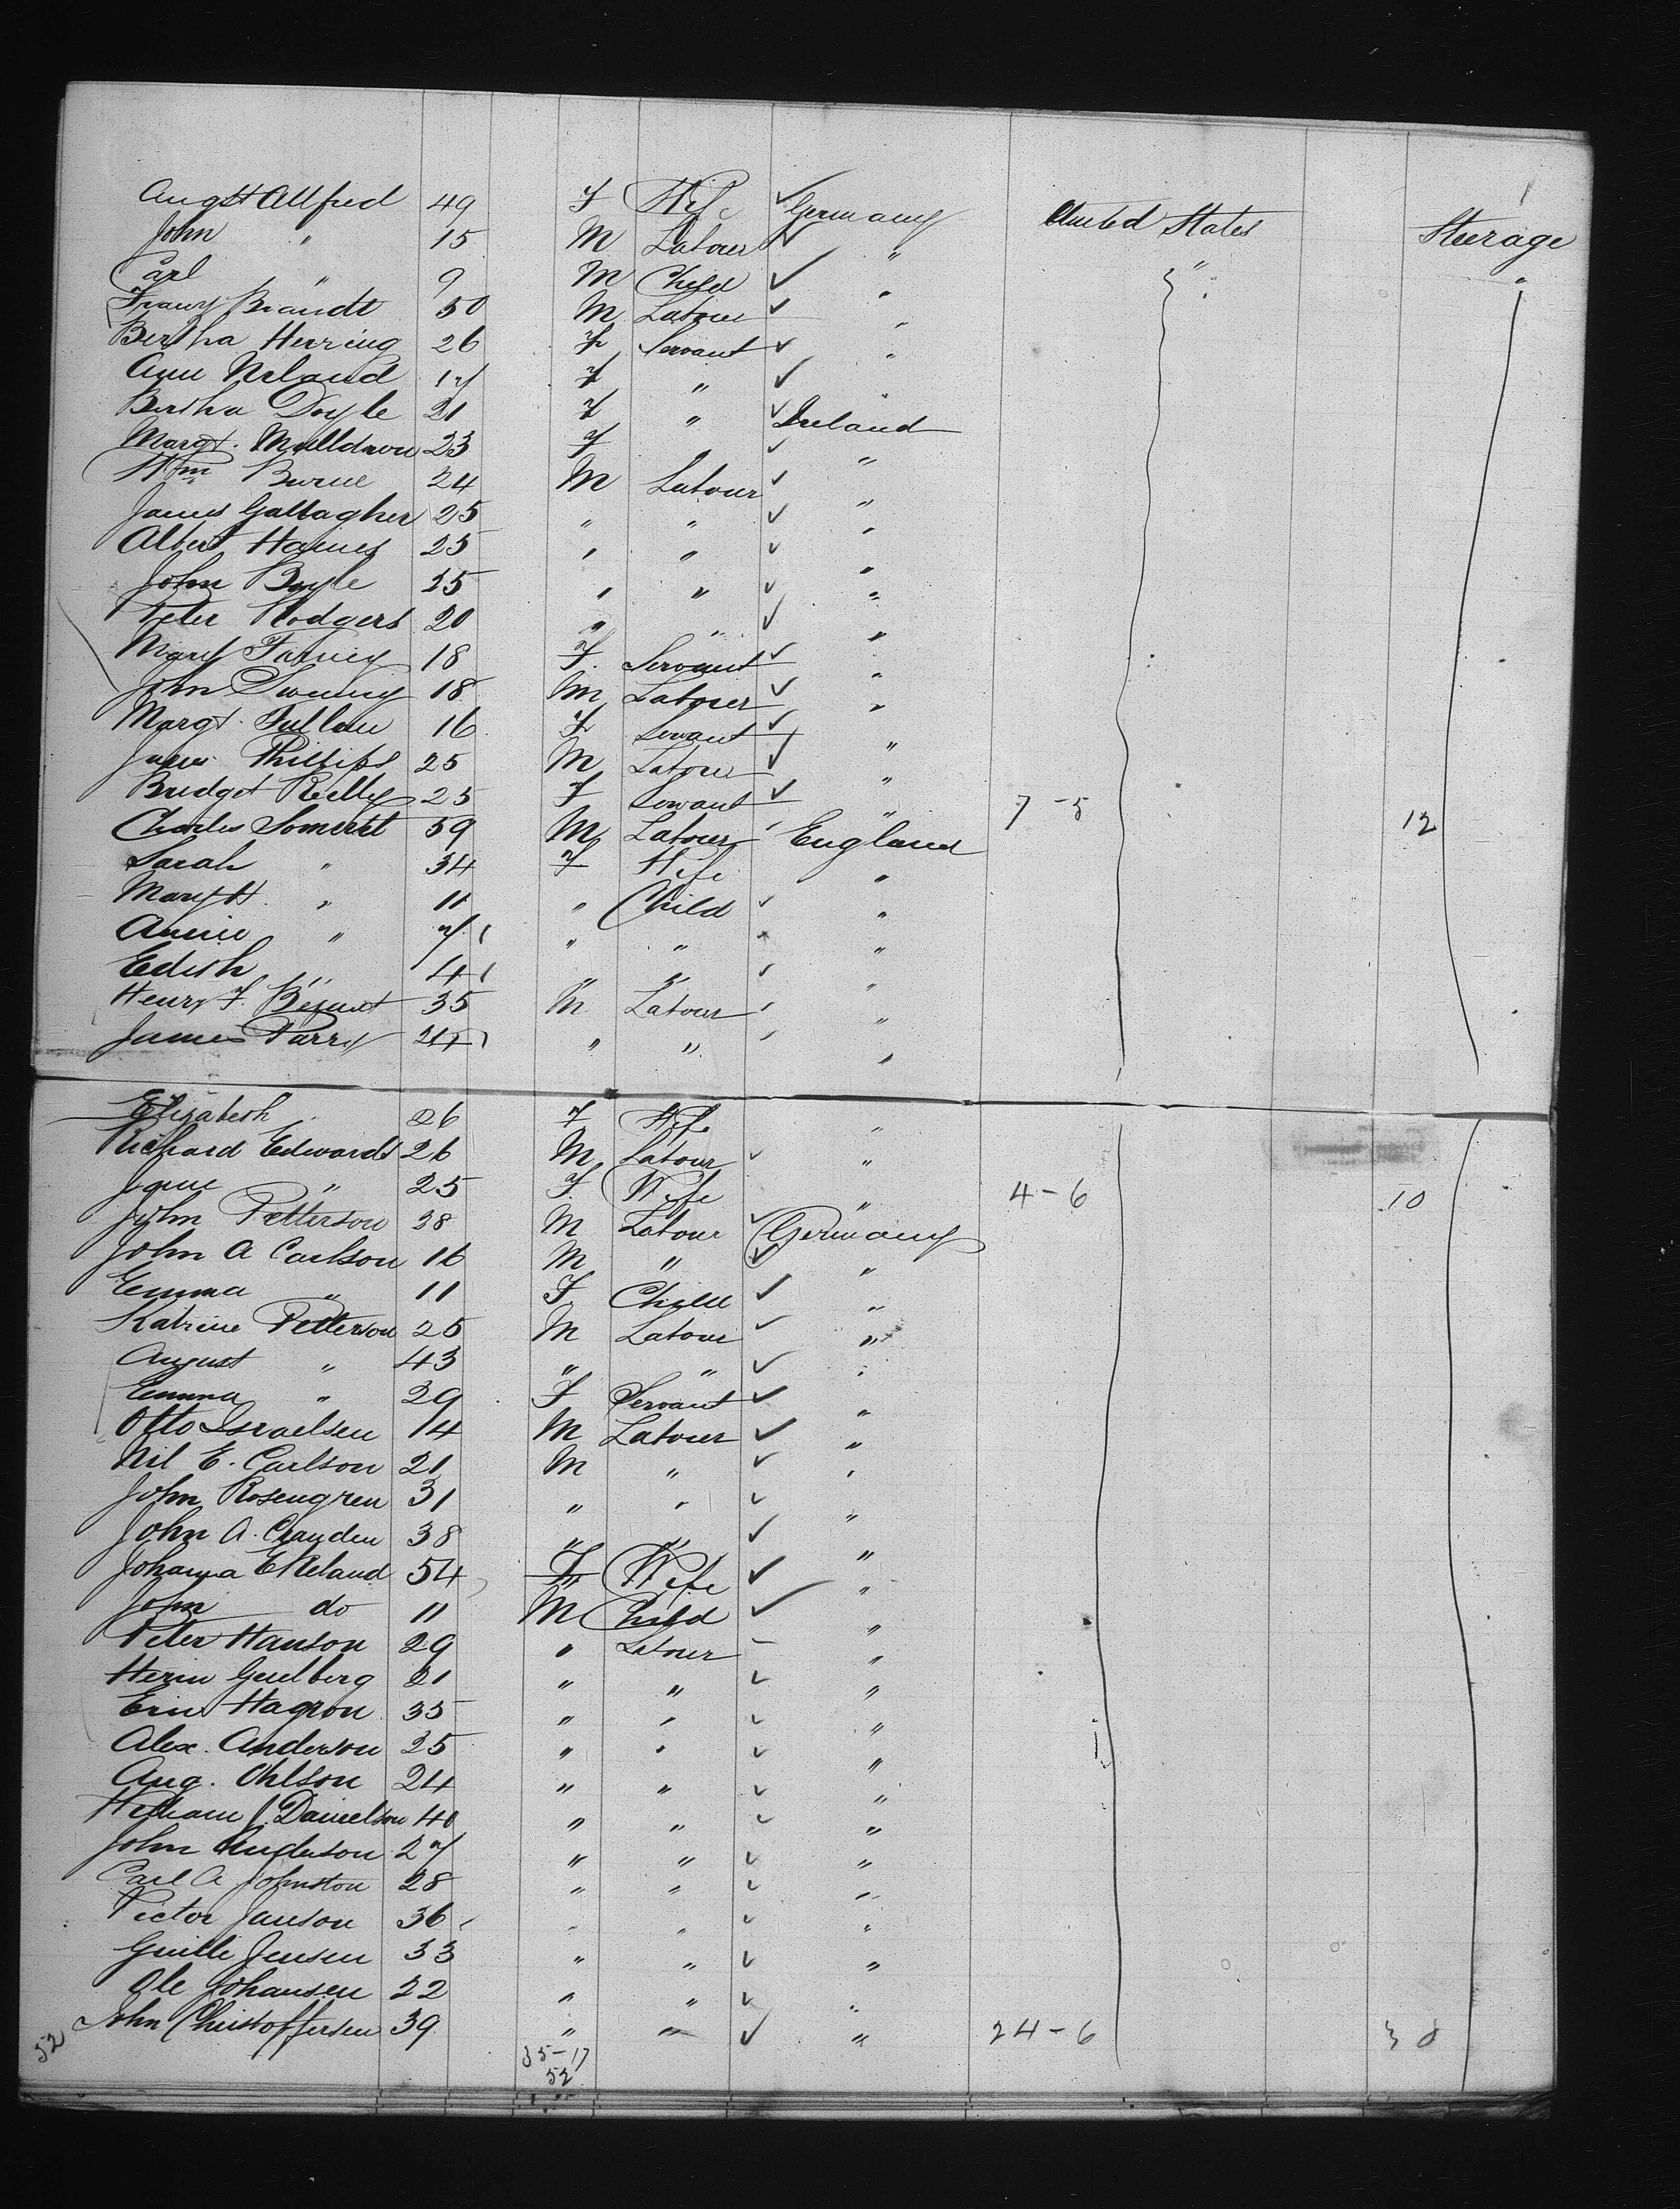 Augst Allfred 49 F Wife ✓ Germany United States Steerage
John " 15 M Labour ✓ " " "
Carl " 9 M Child ✓ "
Franz Brandt 50 M Labour ✓ "
Bertha Herring 26 F Servant ✓ "
Ann Neland 17 F " ✓ "
Bertha Doyle 21 F " ✓ Ireland
Margt. Mulldown 23 F " ✓ "
Wm Burne 24 M Labour ✓ "
James Gallagher 25 " " ✓ "
Albert Haines 25 " " ✓ "
John Boyle 25 " " ✓ "
Peter Rodgers 20 " " ✓ "
Mary 18 F. Servant ✓ "
John Sweeny 18 M Labourer ✓ "
Margt. Fullan 16 F Servant ✓ "
James Phillips 25 M Labour ✓ "
Bridget Reilly 25 F Servant ✓ " 7-5 12
Charles Somerset 59 M Labour England
Sarah " 34 F Wife "
Mary H. " 11 " Child ✓ "
Annie " 7 " " "
Edith " 4 " " ✓ "
Henry F. 35 M Labour "
James Parry 24 " " "
Elizabeth 26 F Wife "
Richard Edwards 26 M Labour ✓ "
Jane " 25 F. Wife " 4-6 10
John Petterson 38 M Labour ✓ Germany
John A Carlson 16 M " ✓ "
Emma " 11 F Child ✓ "
Katrine Petterson 25 M Labour ✓ "
August " 43 " " ✓ "
Emma " 29 F Servant ✓ "
Otto Israelsen 14 M Labour ✓ "
Nil E. Carlson 21 M " ✓ "
John Rosengren 31 " " ✓ "
John A. 38 " " ✓ "
Johanna Ekeland 54 F Wife ✓ "
John do 11 M Child ✓ "
Peter Hanson 29 " Labour "
Guulberg 21 " " ✓ "
Hagron 35 " " ✓ "
Alex. Anderson 25 " " ✓ "
Aug. Ohlson 24 " " ✓ "
William J. Danielson 40 " " ✓ "
John Anderson 27 " " ✓ "
Carl A Johnston 28 " " ✓ "
Victor Janson 36 " " ✓ "
Jensen 33 " " ✓ "
Ole Johansen 22 " " ✓ "
John Christoffersen 39 " " ✓ " 24-6 30
52 35-17
52